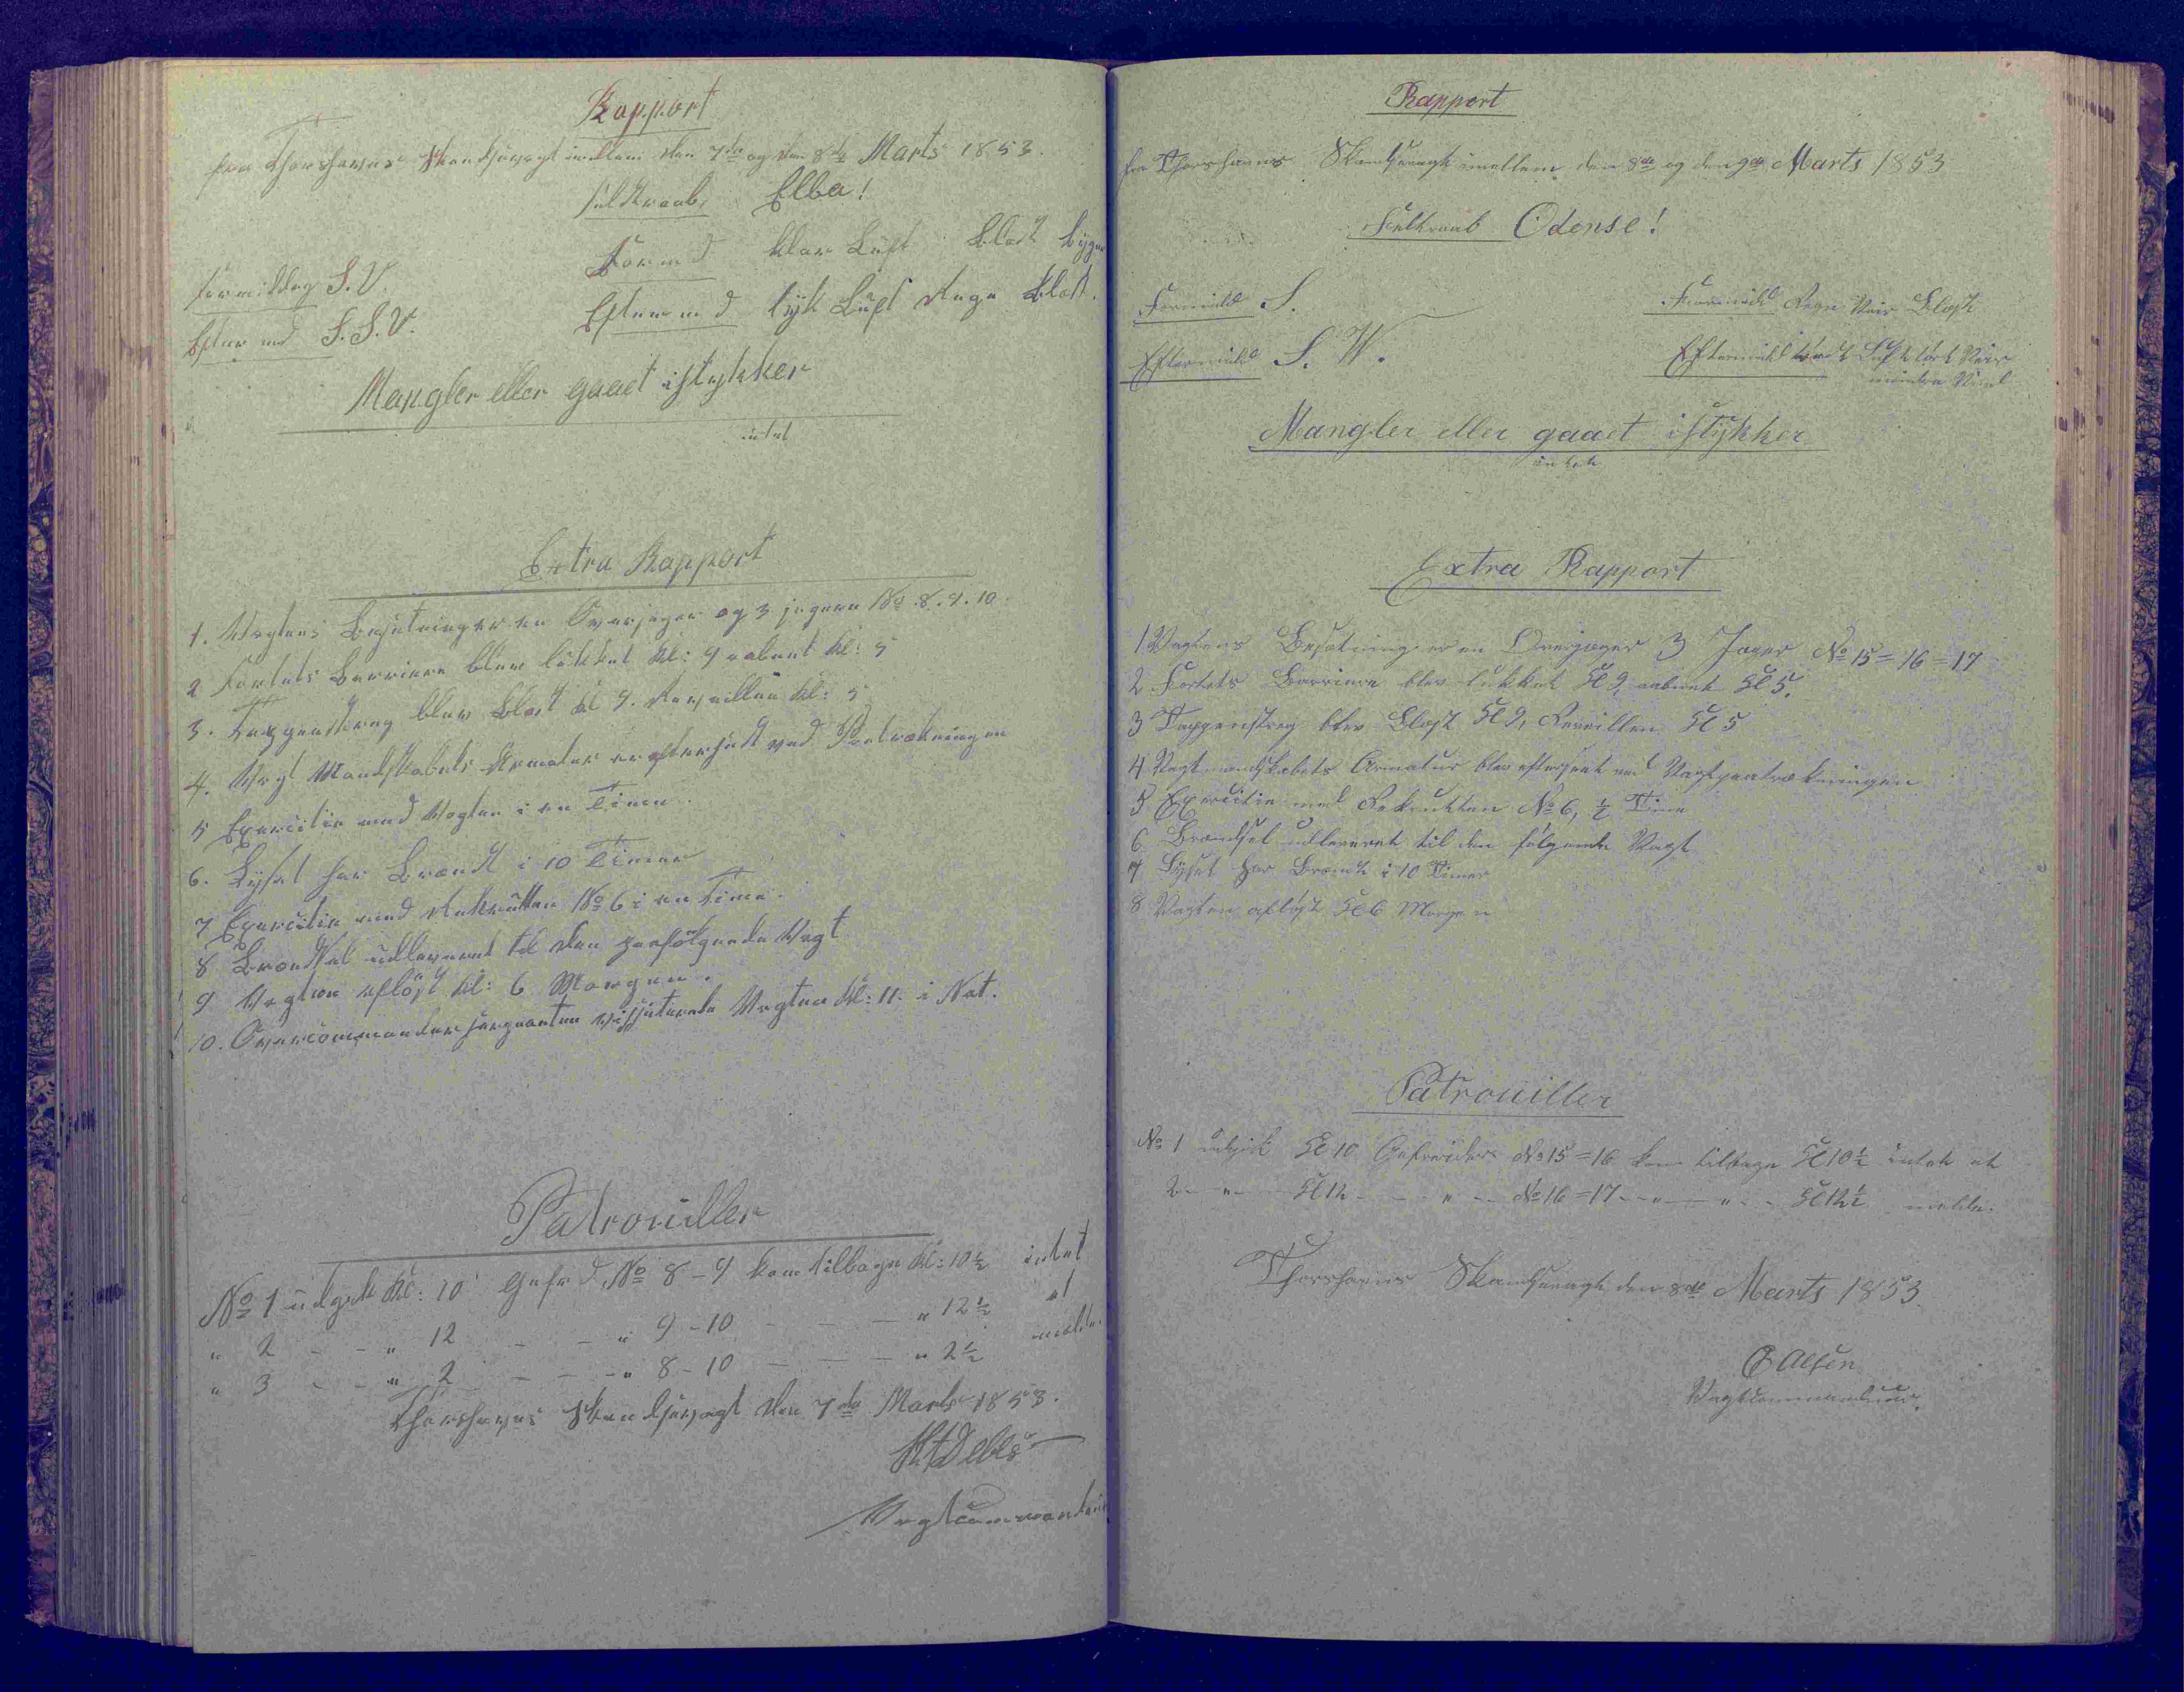 Rapport
fra Thorshavns Skandsevagt imellem den 7de og den 8de Marts 1853.
Feltraab Elba!
Formiddag S.V.
Formd klar Luft Blæst byger
Efter md S.S.V.
Efter md tyk Luft Regn Blæst.
Mangler eller gaaet istykker
intet
Extra Rapport
1. Vagtens Besætning er en Overjæger og 3 jægere No 8. 9. 10.
2 Fortets Barriere blev lukket kl: 9 aabnet kl: 5
3. Tappenstreg blev blæst kl 9. Reveillen kl: 5
4. Vagt Mandskabets Armatur er efterseet ved Paatrækningen
5 Exercitie med Vagten i en Time.
6. Lyset har Brændt i 10 Timer
7 Exercitie med Rekrutten No 6 i en Time.
8 Brændsel udleveret til den paafølgende Vagt
9 Vagten afløst kl: 6 Morgen.
10. Overcommandersergeanten visiterede Vagten kl: 11. i Nat.
Patrouiller
No 1 udgik kl: 10 Gefr d No 8 - 9 kom tilbage kl: 10½ intet
" 2 - - " 12 - - " 9 - 10 - - - " 12½ at
" 3 - - " 2 - - - " 8 - 10 - - - " 2½ melde.
Thorshavns Skandsevagt den 7de Marts 1853.
Debes
Vagtcommandeur
Rapport
fra Thorshavns Skandsevagt imellem den 8de og den 9de Marts 1853
Feltraab Odense!
Formidd S.
Formidd Regn Veir Blæst
Eftermidd S. W.
Eftermidd Luft tört Veir
mindre Vind
Mangler eller gaaet istykker
intet
Extra Rapport
1 Vagtens Besætning er en Overjæger 3 Jæger No 15 = 16 = 17
2 Fortets Barriere blev lukket Kl 9, aabnet Kl 5.
3 Tappenstreg blev Blæst Kl 9, Reveillen Kl 5
4 Vagtmandskabets Armatur blev efterseet ved Vagtpaatrækningen
5 Exercitie med Rekrutten No 6, ½ Time
6 Brændsel udleveret til den følgende Vagt
7 Lyset har Brændt i 10 Timer
8 Vagten afløst Kl 6 Morgen
Patrouiller
No 1 udgik Kl 10 Gefreider No 15 = 16 kom tilbage Kl 10½ intet at
2 - " - Kl 12 - - " - No 16 = 17 - " - " - Kl 12½ melde.
Thorshavns Skandsevagt den 8de Marts 1853.
Olsen
Vagtcommandeur.